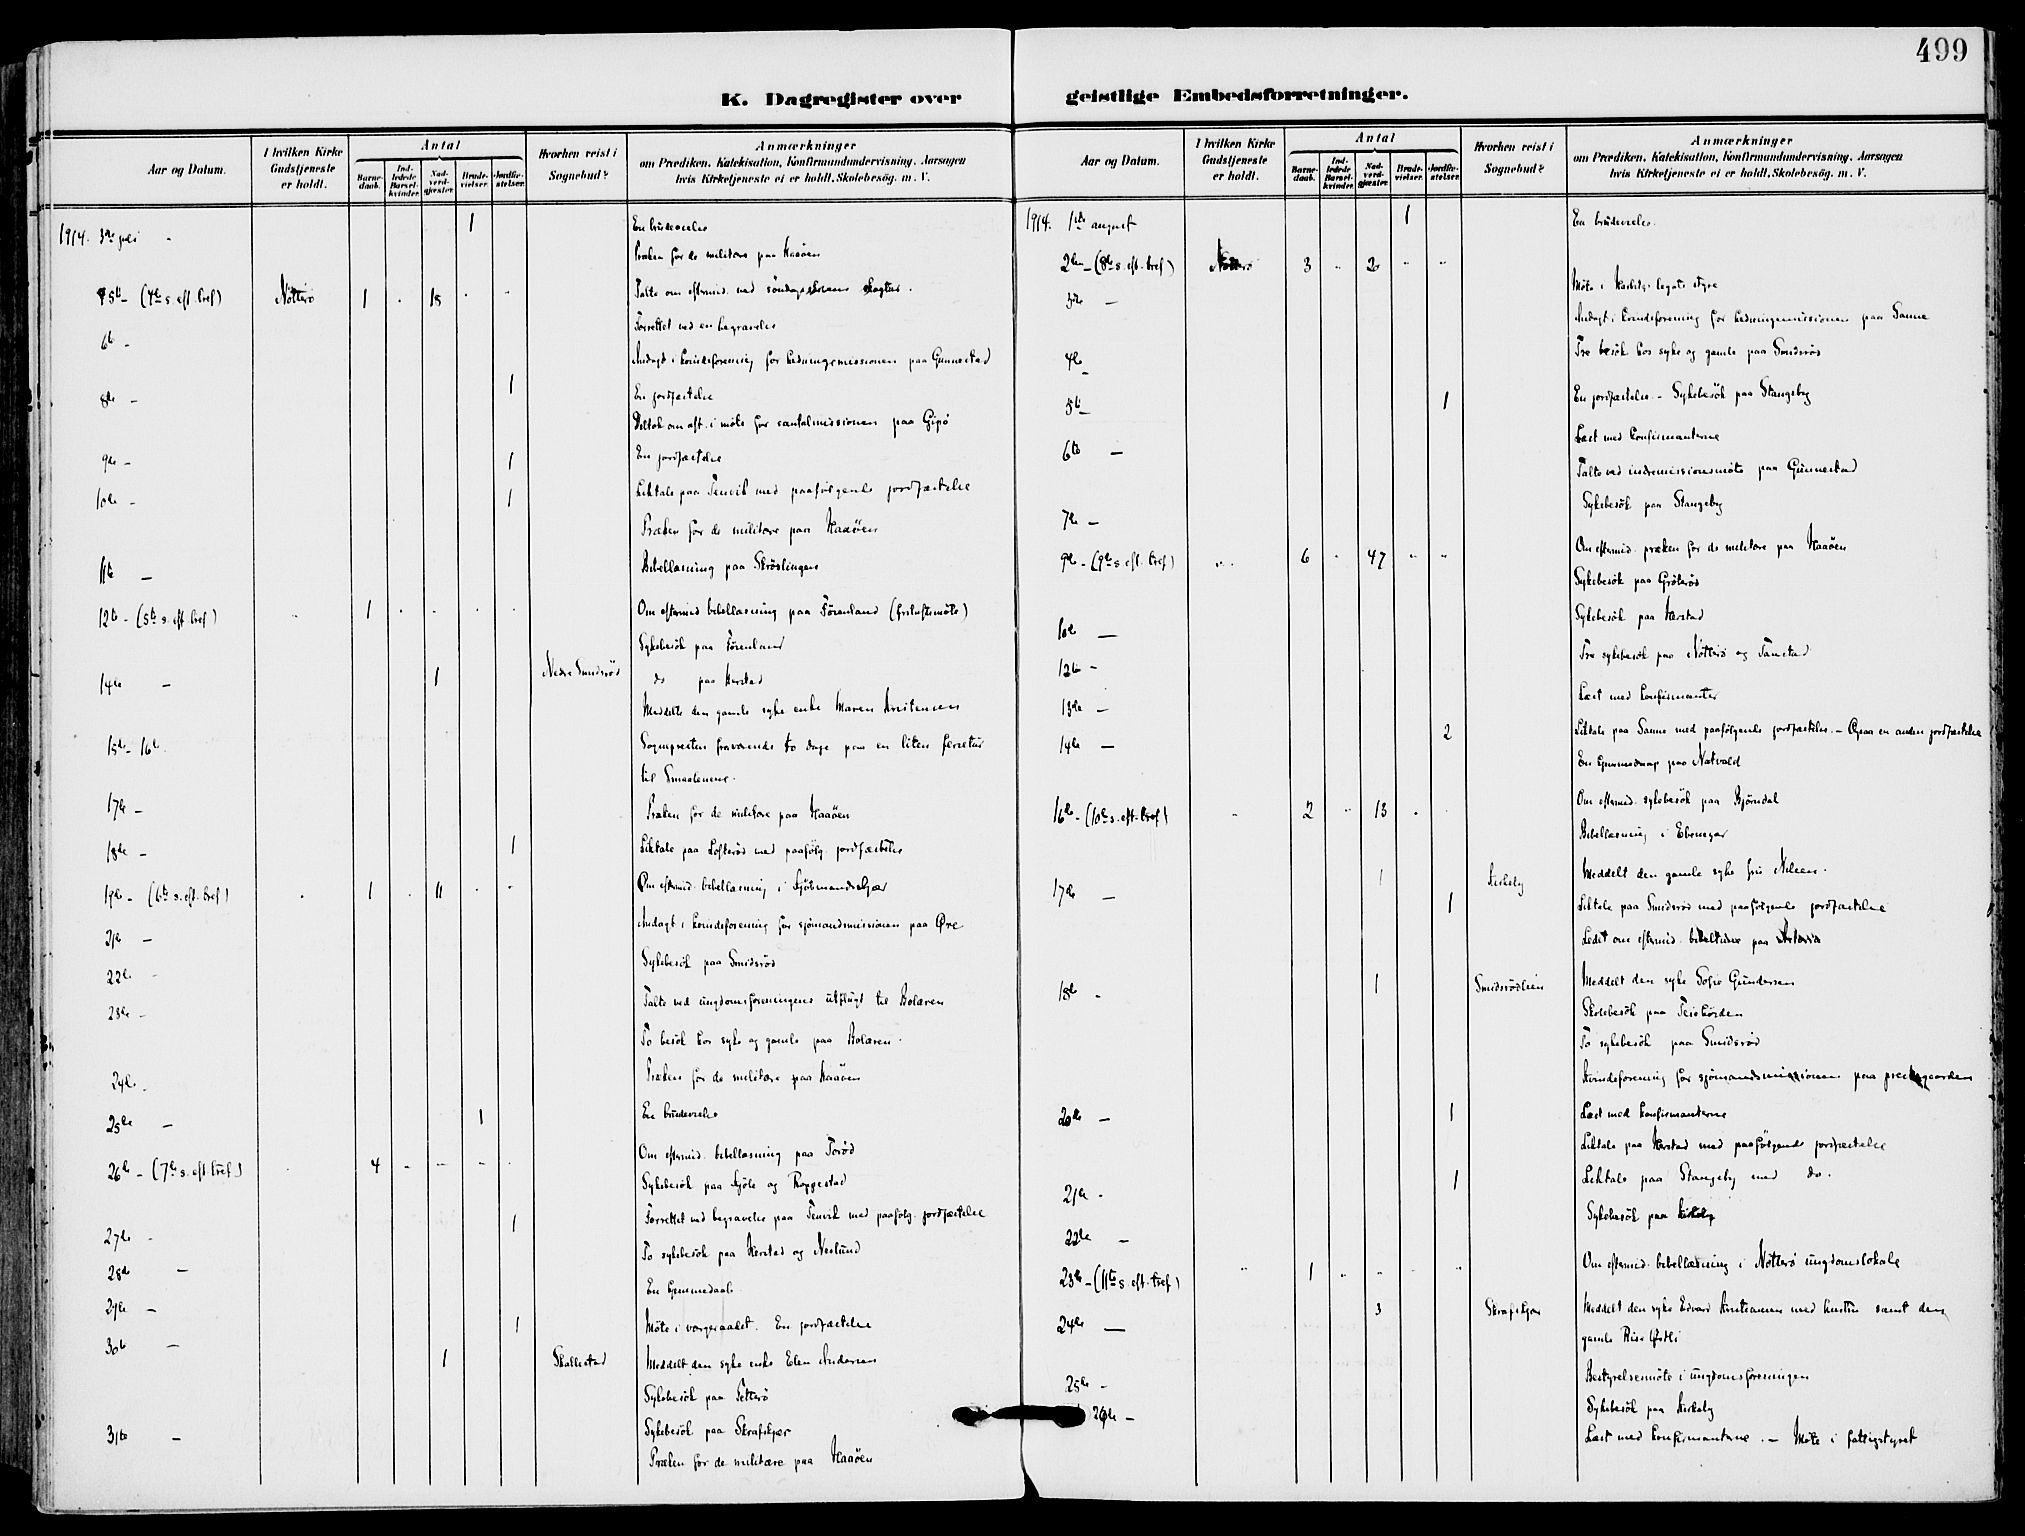 499
K. Dagregister over geistlige Embedsforretninger.
Aar og Datum.
I hvilken Kirke Gudstjeneste er holdt.
Antal
Barnedaab.
Indledede Barselkvinder.
Nadverdgjester.
Brudevielser.
Jordfæstelser.
Hvorhen reist i Sognebud?
Anmærkninger
om Prædiken, Katekisation, Konfirmandundervisning, Aarsagen
hvis Kirketjeneste ei er holdt, Skolebesøg, m. V.
1914. 3die juli - 1 En brudevielse
Præken for de militære paa Haaöen
5te - (4de s. eft. tref) Nötterö 1 18 Talte om eftermid. ved söndagsskolens
Forrettet ved en begravelse
6te - Andagt i kvindeforening for hedningemissionen paa Gunnestad
8de - 1 En jordfæstelse
Deltok om aft. i möte for santalmissionen paa Gipö
9de - 1 En jordfæstelse
10de - 1 Liktale paa Tenvik med paafölgende jordfæstelse
Præken for de militære paa Haaöen
11te - Bibellæsning paa
12te - (5te s. eft. tref) 1 Om eftermid bibellæsning paa Förenland (friluftsmöte)
Sykebesök paa Förenland
14de - 1 Nedre Smidsröd do paa Herstad
Meddelte den gamle syke enke Maren Kristensen
15de - 16de Sogneprestens fraværende to dage paa en liten ferietur
til
17de - Præken for de militære paa Haaöen
18de - 1 Liktale paa Lofteröd med paafölg. jordfæstelse
19de - (6te s. eft. tref) 1 11 Om eftermid. bibellæsning i
21de - Andagt i kvindeforening for sjömandsmissionen paa Öre
22de - Sykebesök paa Smidsröd
23de - Talte ved ungdomsforeningens utflugt til Bolæren
To besök hos syke og gamle paa Bolæren.
24de - Præken for de militære paa Haaöen
25de - 1 En brudevielse
26de - (7de s. eft. tref) 4 Om eftermid. bibellæsning paa Toröd
Sykebesök paa Fjöle og Roppestad
27de - 1 Forrettet ved begravelse paa Tenvik med paafölg. jordfæstelse
28de - To sykebesök paa Herstad og Neslund
29de - En hjemmedaab.
30te - 1 Möte i vergeraadet. En jordfæstelse
1 Skallestad Meddelt den syke enke Elen Andersen
Sykebesök paa
31te - Sykebesök paa Skrafskjær
Præken for de militære paa Haaöen
Aar og Datum.
I hvilken Kirke Gudstjeneste er holdt.
Antal
Barnedaab.
Indledede Barselkvinder.
Nadverdgjester.
Brudevielser.
Jordfæstelser.
Hvorhen reist i Sognebud?
Anmærkninger
om Prædiken, Katekisation, Konfirmandundervisning, Aarsagen
hvis Kirketjeneste ei er holdt, Skolebesög, m. V.
1914. 1ste august 1 En brudevielse.
2den - (8de s. eft. tref) Nötterö 3 20
3die - Möte i legats styre
Andagt i kvindeforening for hedningemissionen paa Sanne
4de - Tre besök hos syke og gamle paa Smidsröd
5te - 1 En jordfæstelse. - Sykebesök paa Stangeby
6te - Læst med konfirmanterne
Talte ved indremissionsmöte paa Gunnestad
7de - Sykebesök paa Stangeby
9de - (9de s. eft. tref) 6 47 Om eftermid. præken for de militære paa Haaöen
Sykebesök paa Gröteröd
10de - Sykebesök paa Herstad
12te - Tre sykebesök paa Nötterö og Tanstad
13de - Læst med konfirmanter
14de - 2 Liktale paa Sanne med paafölgende jordfæstelse. - Ogsaa en anden jordfæstelse
En hjemmedaap paa Natvald
16de - (10de s. eft. tref) 2 13 Om eftermid. sykebesök paa Björndal
Bibellæsning i Ebenezer
17de - 1 Kirkeby Meddelt den gamle syke fru Nilsen.
1 Liktale paa Smidsröd med paafölgende jordfæstelse
Ledet om eftermid. bibeltime paa
18de - 1 Smidsrödlien Meddelt den syke Sofie Gundersen
Skolebesök paa
To sykebesök paa Smidsröd
Kvindeforening for sjömandsmissionen paa prestegaarden
20de - 1 Læst med konfirmanterne
Liktale paa Herstad med paafölgende jordfæstelse
21de - 1 Liktale paa Stangeby med do.
22de - Sykebesök paa Kirkeby
23de - (11te s. eft. tref) 1 Om eftermid. bibellæsning i Nötterö ungdomslokale
24de - 3 Skrafskjær Meddelt den syke Edvard Kristiansen med hustru samt den
gamle
25de - Bestyrelsesmöte i ungdomsforeningen
Sykebesök paa Kirkeby
26de - Læst med konfirmanterne. - Möte i fattigstyret